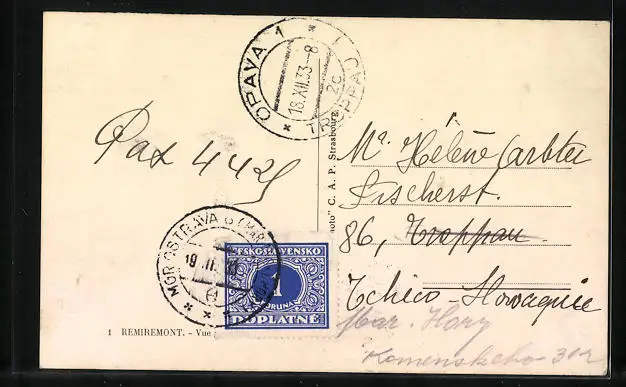 OPAVA 1
18.XII.33-8
2c
TROPPAU 1
Pax 4425
Photo" C. A. P. Strasbourg
Mr. Hélène Arbter
Fischerst.
86, Troppau.
Tchéco-Slovaquie
Mar. Hory
Komenskeho 312
MOR. OSTRAVA
ČESKOSLOVENSKO
1
KORUNA
DOPLATNÉ
1 REMIREMONT. - Vue